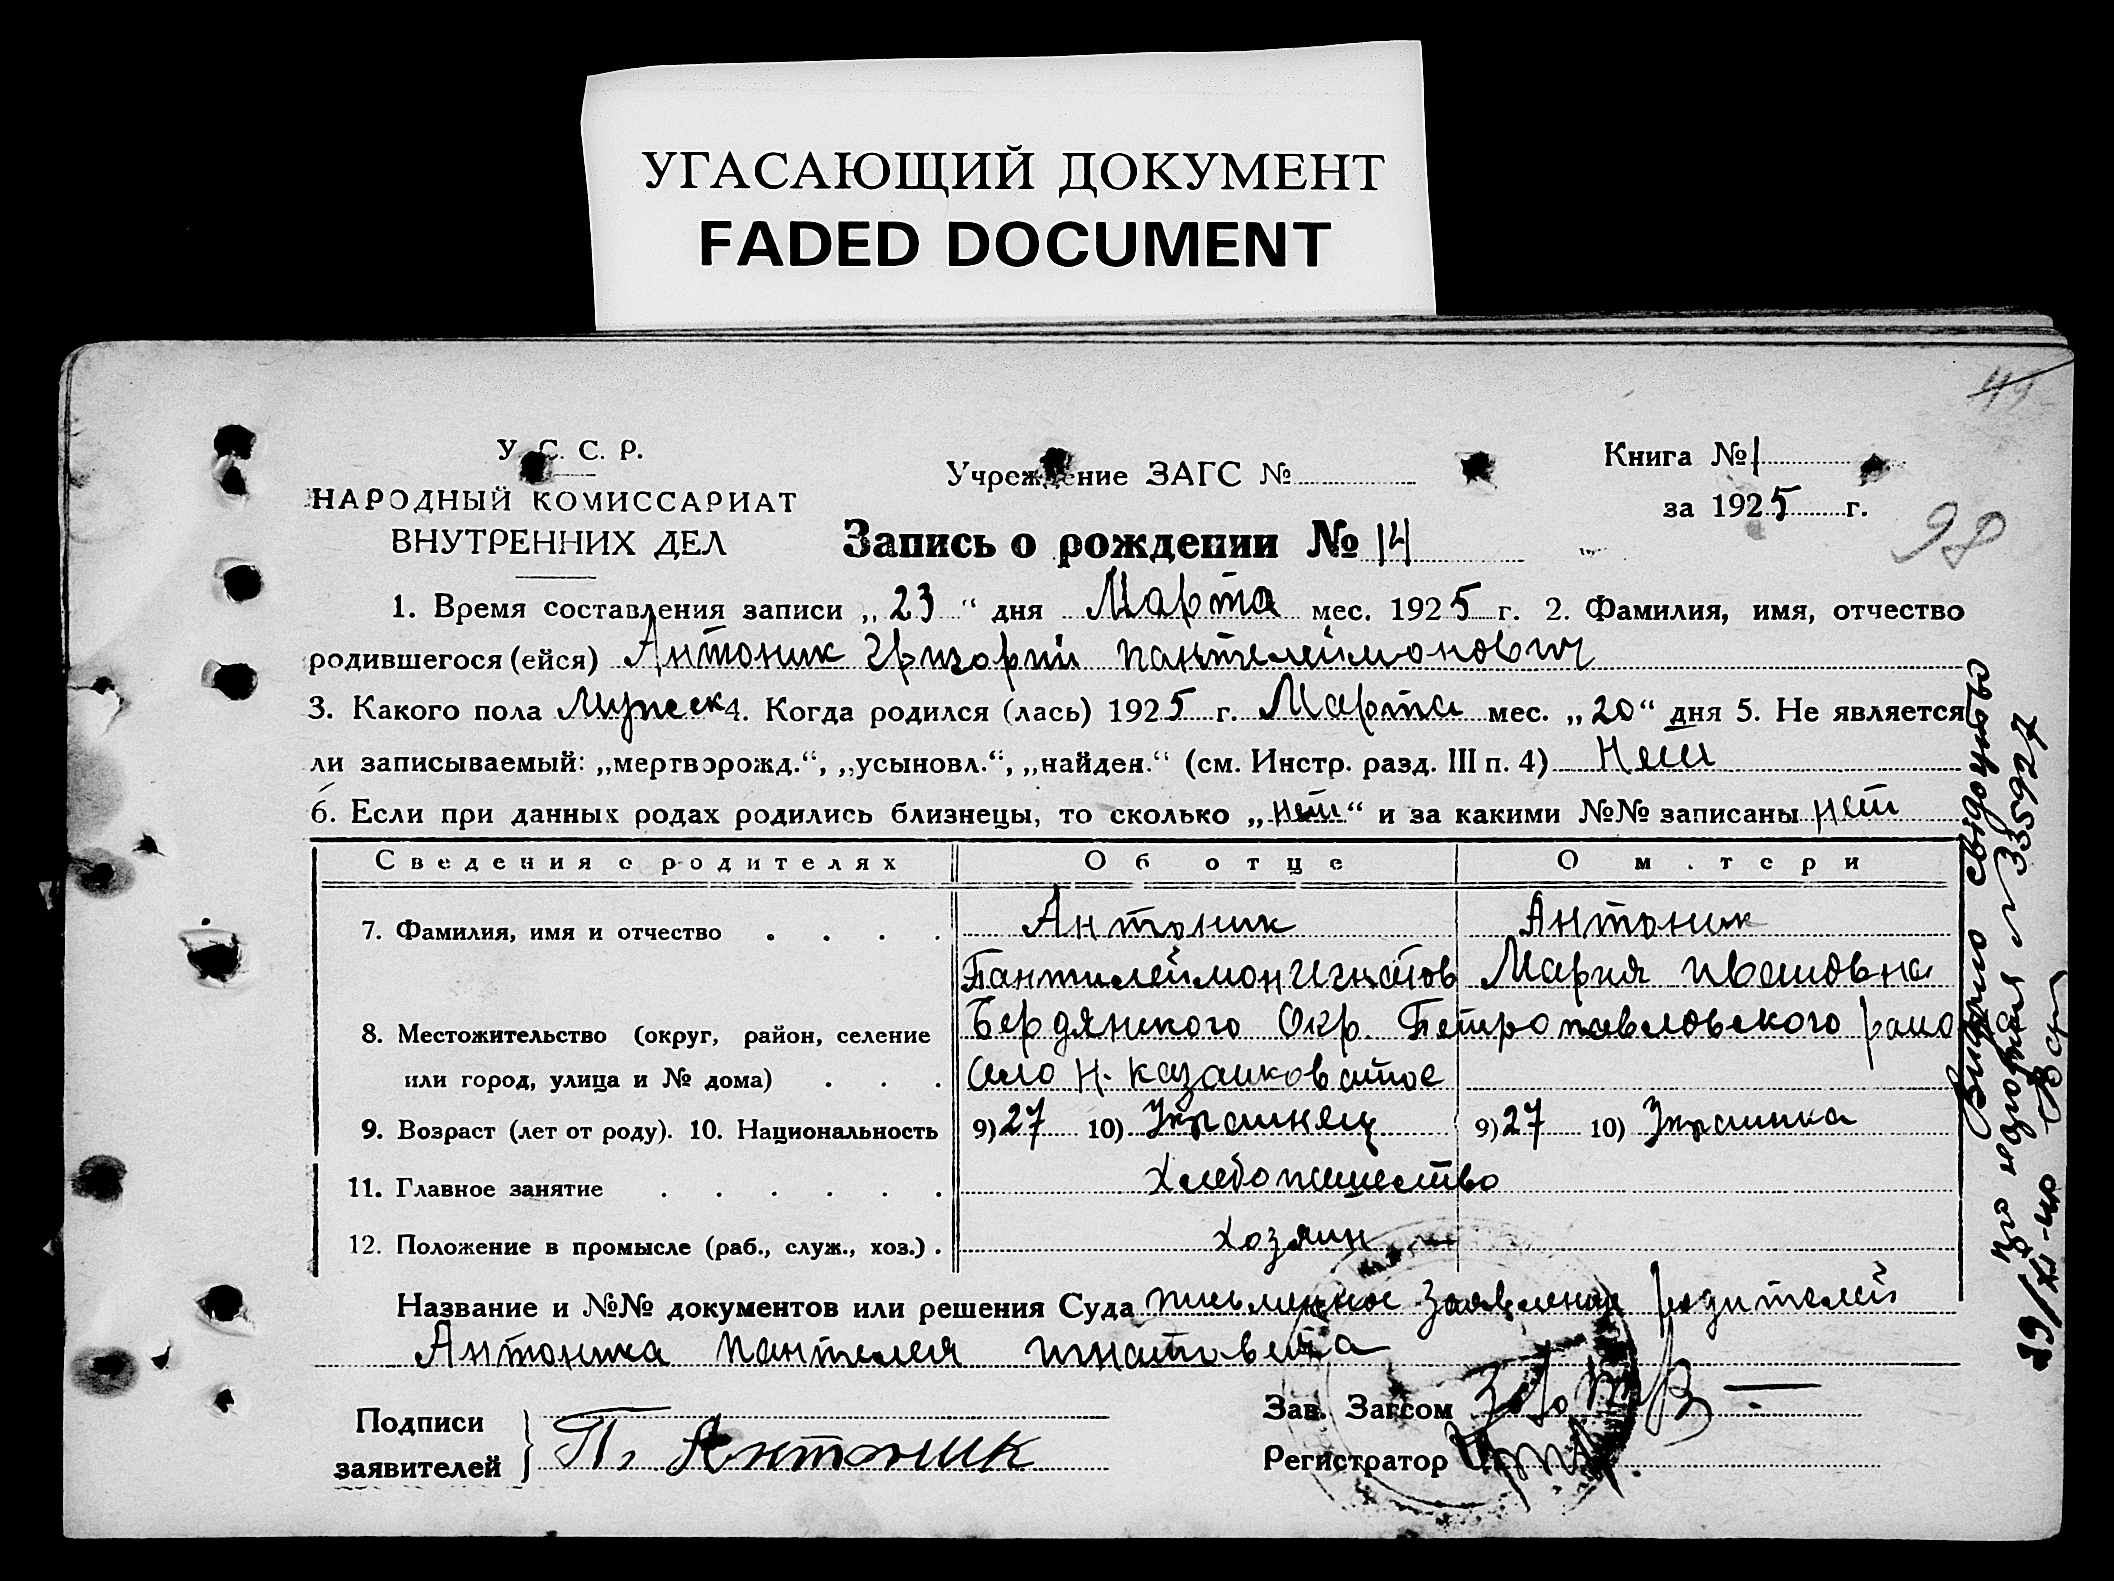 УГАСАЮЩИЙ ДОКУМЕНТ
FADED DOCUMENT
49
У. С. С. Р.
НАРОДНЫЙ КОМИССАРИАТ
ВНУТРЕННИХ ДЕЛ
Учреждение ЗАГС №
Книга № 1
за 1925 г.
98
Запись о рождении № 14
1. Время составления записи „23“ дня Марта мес. 1925 г. 2. Фамилия, имя, отчество
родившегося (ейся) Антоник Григорий Пантелеймонович
3. Какого пола Мужск 4. Когда родился (лась) 1925 г. Марта мес. „20“ дня 5. Не является
ли записываемый: „мертворожд.“, „усыновл.“, „найден.“ (см. Инстр. разд. III п. 4) Нет
6. Если при данных родах родились близнецы, то сколько „нет“ и за какими №№ записаны нет
Сведения о родителях Об отце О м.тери
7. Фамилия, имя и отчество . . . . Антоник Антоник
Пантилеймон Игнатов Мария Ивановна
8. Местожительство (округ, район, селение Бердянского Окр. Петропавловского рано
или город, улица и № дома) . . . Село Н. Казанковатое
9. Возраст (лет от роду). 10. Национальность 9) 27 10) Украинец 9) 27 10) Украинка
11. Главное занятие . . . . . . Хлебопашество
12. Положение в промысле (раб., служ., хоз.) . Хозяин
Название и №№ документов или решения Суда письменное заявление родителей
Антоника Пантелея Игнатовича
Подписи
заявителей } П. Антоник
Зав. Загсом
Регистратор
Видано свідоцтво
про народження № 35927
29/XI-40